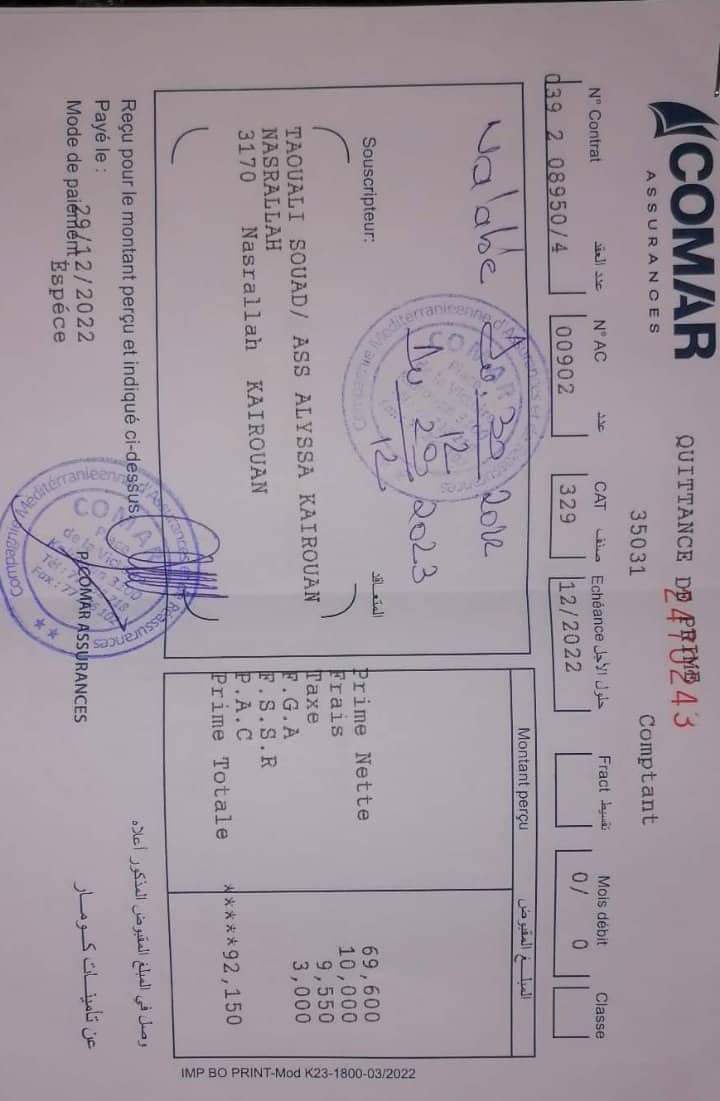 COMAR
ASSURANCES
QUITTANCE DE PRIME
2470243
35031 Comptant
N° Contrat عدد العقد N° AC عدد CAT صنف Echéance حلول الأجل Fract تقسيط Mois débit Classe
d39 2 08950/4 00902 329 12/2022 0/ 0
Valable Du 30 12 2022
Au 29 12 2023
Souscripteur:
TAOUALI SOUAD/ ASS ALYSSA KAIROUAN
NASRALLAH
3170 Nasrallah KAIROUAN
Montant perçu المبلغ المقبوض
Prime Nette 69,600
Frais 10,000
Taxe 9,550
F.G.A 3,000
F.S.S.R
P.A.C
Prime Totale *****92,150
Reçu pour le montant perçu et indiqué ci-dessus
وصل في المبلغ المقبوض المذكور أعلاه
Payé le : 29/12/2022
Mode de paiement Espéce
P/COMAR ASSURANCES
عن تأمينات كـومـار
COMAR
Compagnie Méditerranéenne d'Assurances et de Réassurances
IMP BO PRINT-Mod K23-1800-03/2022